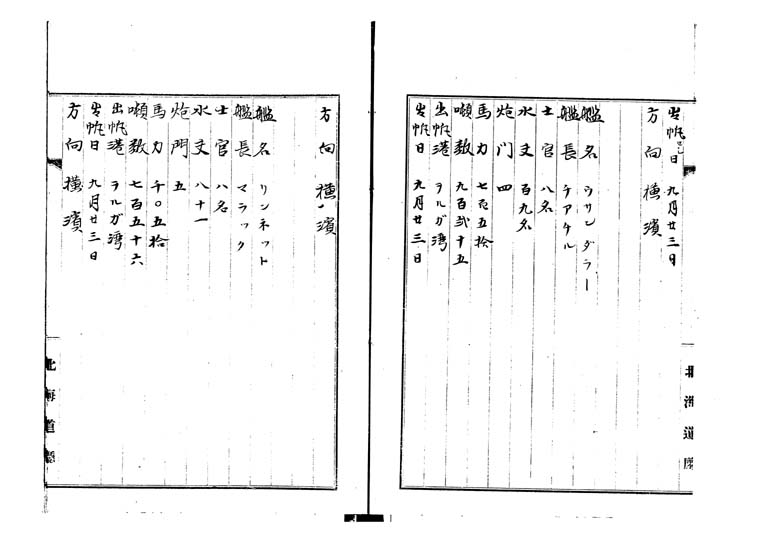 出帆日 九月廿三日
方向 横濱
艦名 ウサンダラー
艦長 チアケル
士官 八名
水夫 百九名
炮门 四
馬力 七百五拾
噸数 九百弐十五
出帆港 ヲルガ湾
出帆日 九月廿三日
方向 横濱
艦名 リンネット
艦長 マラック
士官 八名
水夫 八十一
炮門 五
馬力 千〇五拾
噸数 七百五十六
出帆港 ヲルガ湾
出帆日 九月廿三日
方向 横濱
北海道廳
北海道廳